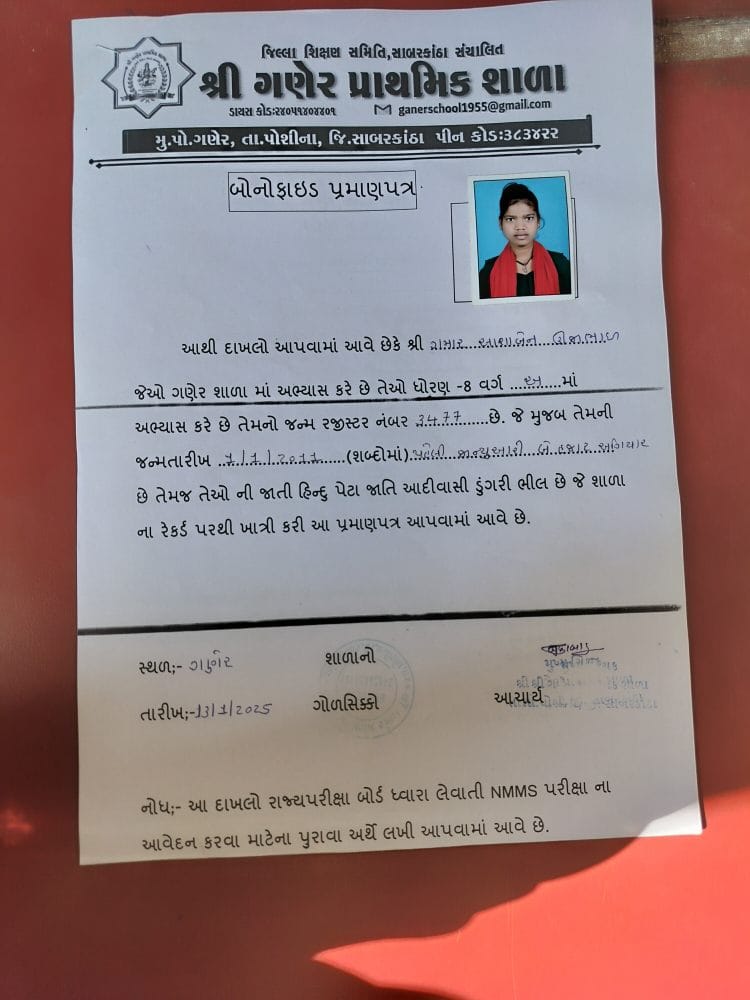 જિલ્લા શિક્ષણ સમિતિ,સાબરકાંઠા સંચાલિત
શ્રી ગણેર પ્રાથમિક શાળા
ડાયસ કોડ:૨૪૦૫૧૪૦૪૪૦૧ ganerschool1955@gmail.com
મુ.પો.ગણેર, તા.પોશીના, જિ.સાબરકાંઠા પીન કોડ:૩૮૩૪૨૨
બોનોફાઇડ પ્રમાણપત્ર
આથી દાખલો આપવામાં આવે છેકે શ્રી ગમાર આશાબેન
જેઓ ગણેર શાળા માં અભ્યાસ કરે છે તેઓ ધોરણ -8 વર્ગ ....અ.....માં
અભ્યાસ કરે છે તેમનો જન્મ રજીસ્ટર નંબર 3477.......છે. જે મુજબ તેમની
જન્મતારીખ 1/1/2011............(શબ્દોમાં) પહેલી જાન્યુઆરી બે હજાર અગિયાર
છે તેમજ તેઓ ની જાતી હિન્દુ પેટા જાતિ આદીવાસી ડુંગરી ભીલ છે જે શાળા
ના રેકર્ડ પરથી ખાત્રી કરી આ પ્રમાણપત્ર આપવામાં આવે છે.
સ્થળ;- ગણેર શાળાનો
તારીખ;-13/1/2025 ગોળસિક્કો આચાર્ય
નોધ;- આ દાખલો રાજ્યપરીક્ષા બોર્ડ ધ્વારા લેવાતી NMMS પરીક્ષા ના
આવેદન કરવા માટેના પુરાવા અર્થે લખી આપવામાં આવે છે.